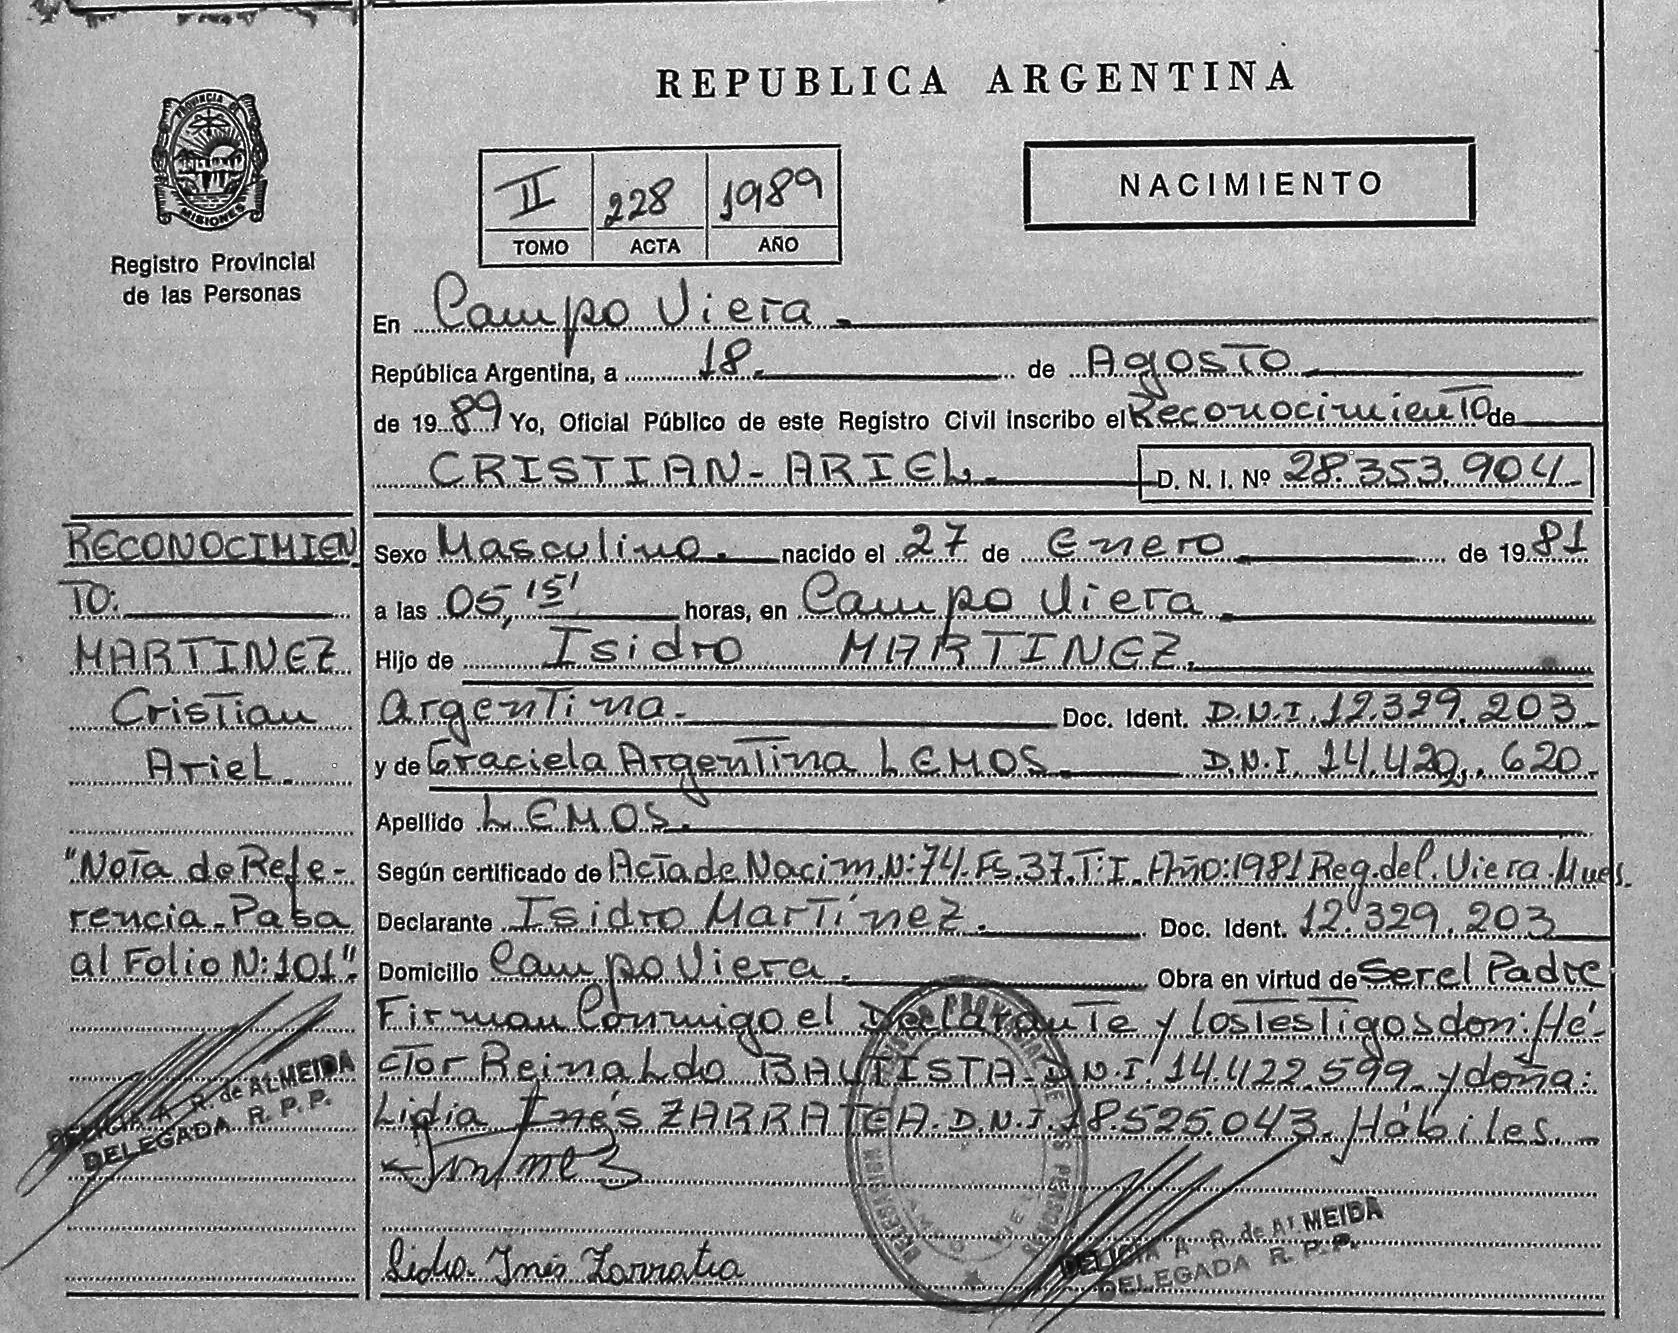 REPUBLICA ARGENTINA
PROVINCIA DE
MISIONES
Registro Provincial
de las Personas
II 228 1989
TOMO ACTA AÑO
NACIMIENTO
En Campo Viera
República Argentina, a 18. de Agosto
de 1989 Yo, Oficial Público de este Registro Civil inscribo el Reconocimiento de
CRISTIAN-ARIEL. D. N. I. Nº 28.353.904
Sexo Masculino. nacido el 27 de Enero de 1981
a las 05,15' horas, en Campo Viera
Hijo de Isidro MARTINEZ.
Argentina. Doc. Ident. D.N.I. 12.329.203.
y de Graciela Argentina LEMOS. D.N.I. 14.420.620.
Apellido LEMOS.
Según certificado de Acta de Nacim. N:74. Fs.37. T:I. Año:1981 Reg. del. Viera
Declarante Isidro Martínez. Doc. Ident. 12.329.203
Domicilio Campo Viera. Obra en virtud de Ser el Padre
Firman Conmigo el Declarante y los Testigos don: Hé-
ctor Reinaldo BAUTISTA. D.N.I. 14.422.599. y doña:
Lidia Inés ZARRATEA. D.N.I. 18.525.043. Hábiles.
Lidia Inés Zarratea
DELICIA A R. de ALMEIDA
DELEGADA R. P. P.
RECONOCIMIEN
TO:
MARTINEZ
Cristian
Ariel.
"Nota de Refe-
rencia. Pasa
al Folio N:101".
DELICIA A R. de ALMEIDA
DELEGADA R. P. P.